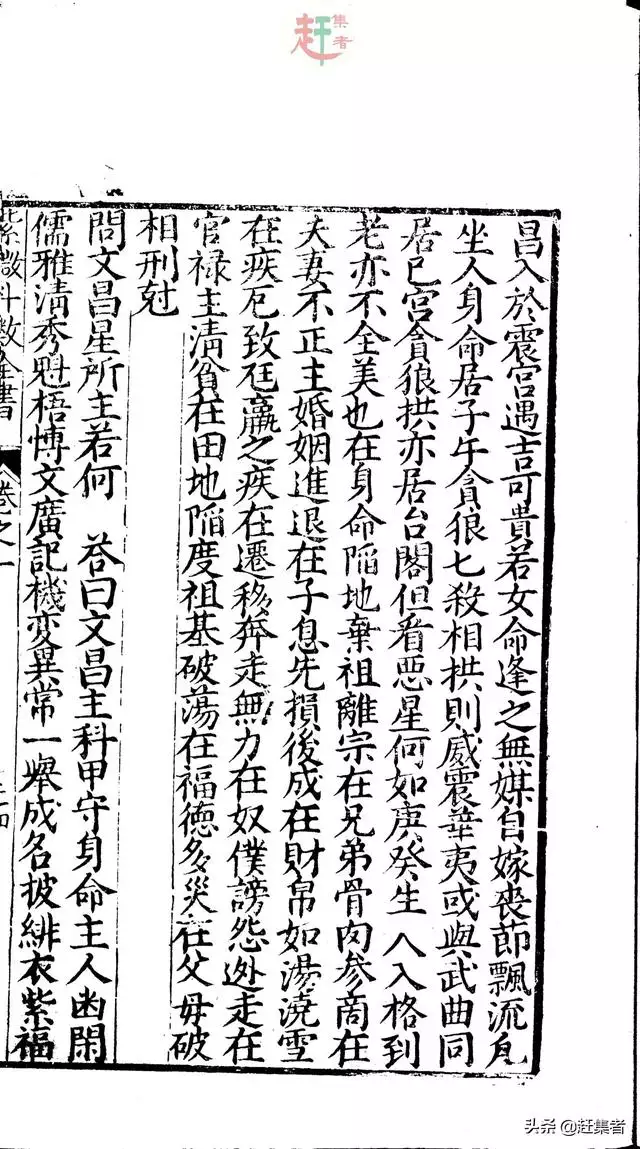 赶集者
昌入於震宮遇吉可貴若女命逢之無媒自嫁喪節飄流凢
坐人身命居子午貪狼七殺相拱則威震華夷或與武曲同
居巳宮貪狼拱亦居台閣但看惡星何如庚癸生人入格到
老亦不全美也在身命陷地棄祖離宗在兄弟骨肉参商在
夫妻不正主婚姻進退在子息先損後成在財帛如湯澆雪
在疾厄致尫羸之疾在遷移奔走無力在奴僕謗怨迯走在
官禄主清貧在田地陷度祖基破蕩在福德多災在父母破
相刑尅
問文昌星所主若何　荅曰文昌主科甲守身命主人幽閑
儒雅清秀魁梧博文廣記機变異常一舉成名披緋衣紫福
紫微斗數全書　卷之一
头条 @赶集者